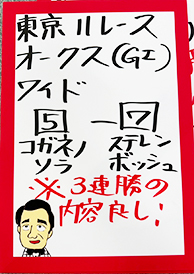 東京11レース
オークス(GI)
ワイド
5 － 7
コガネノ ステレン
ソラ ボッシュ
※3連勝の
内容良し!